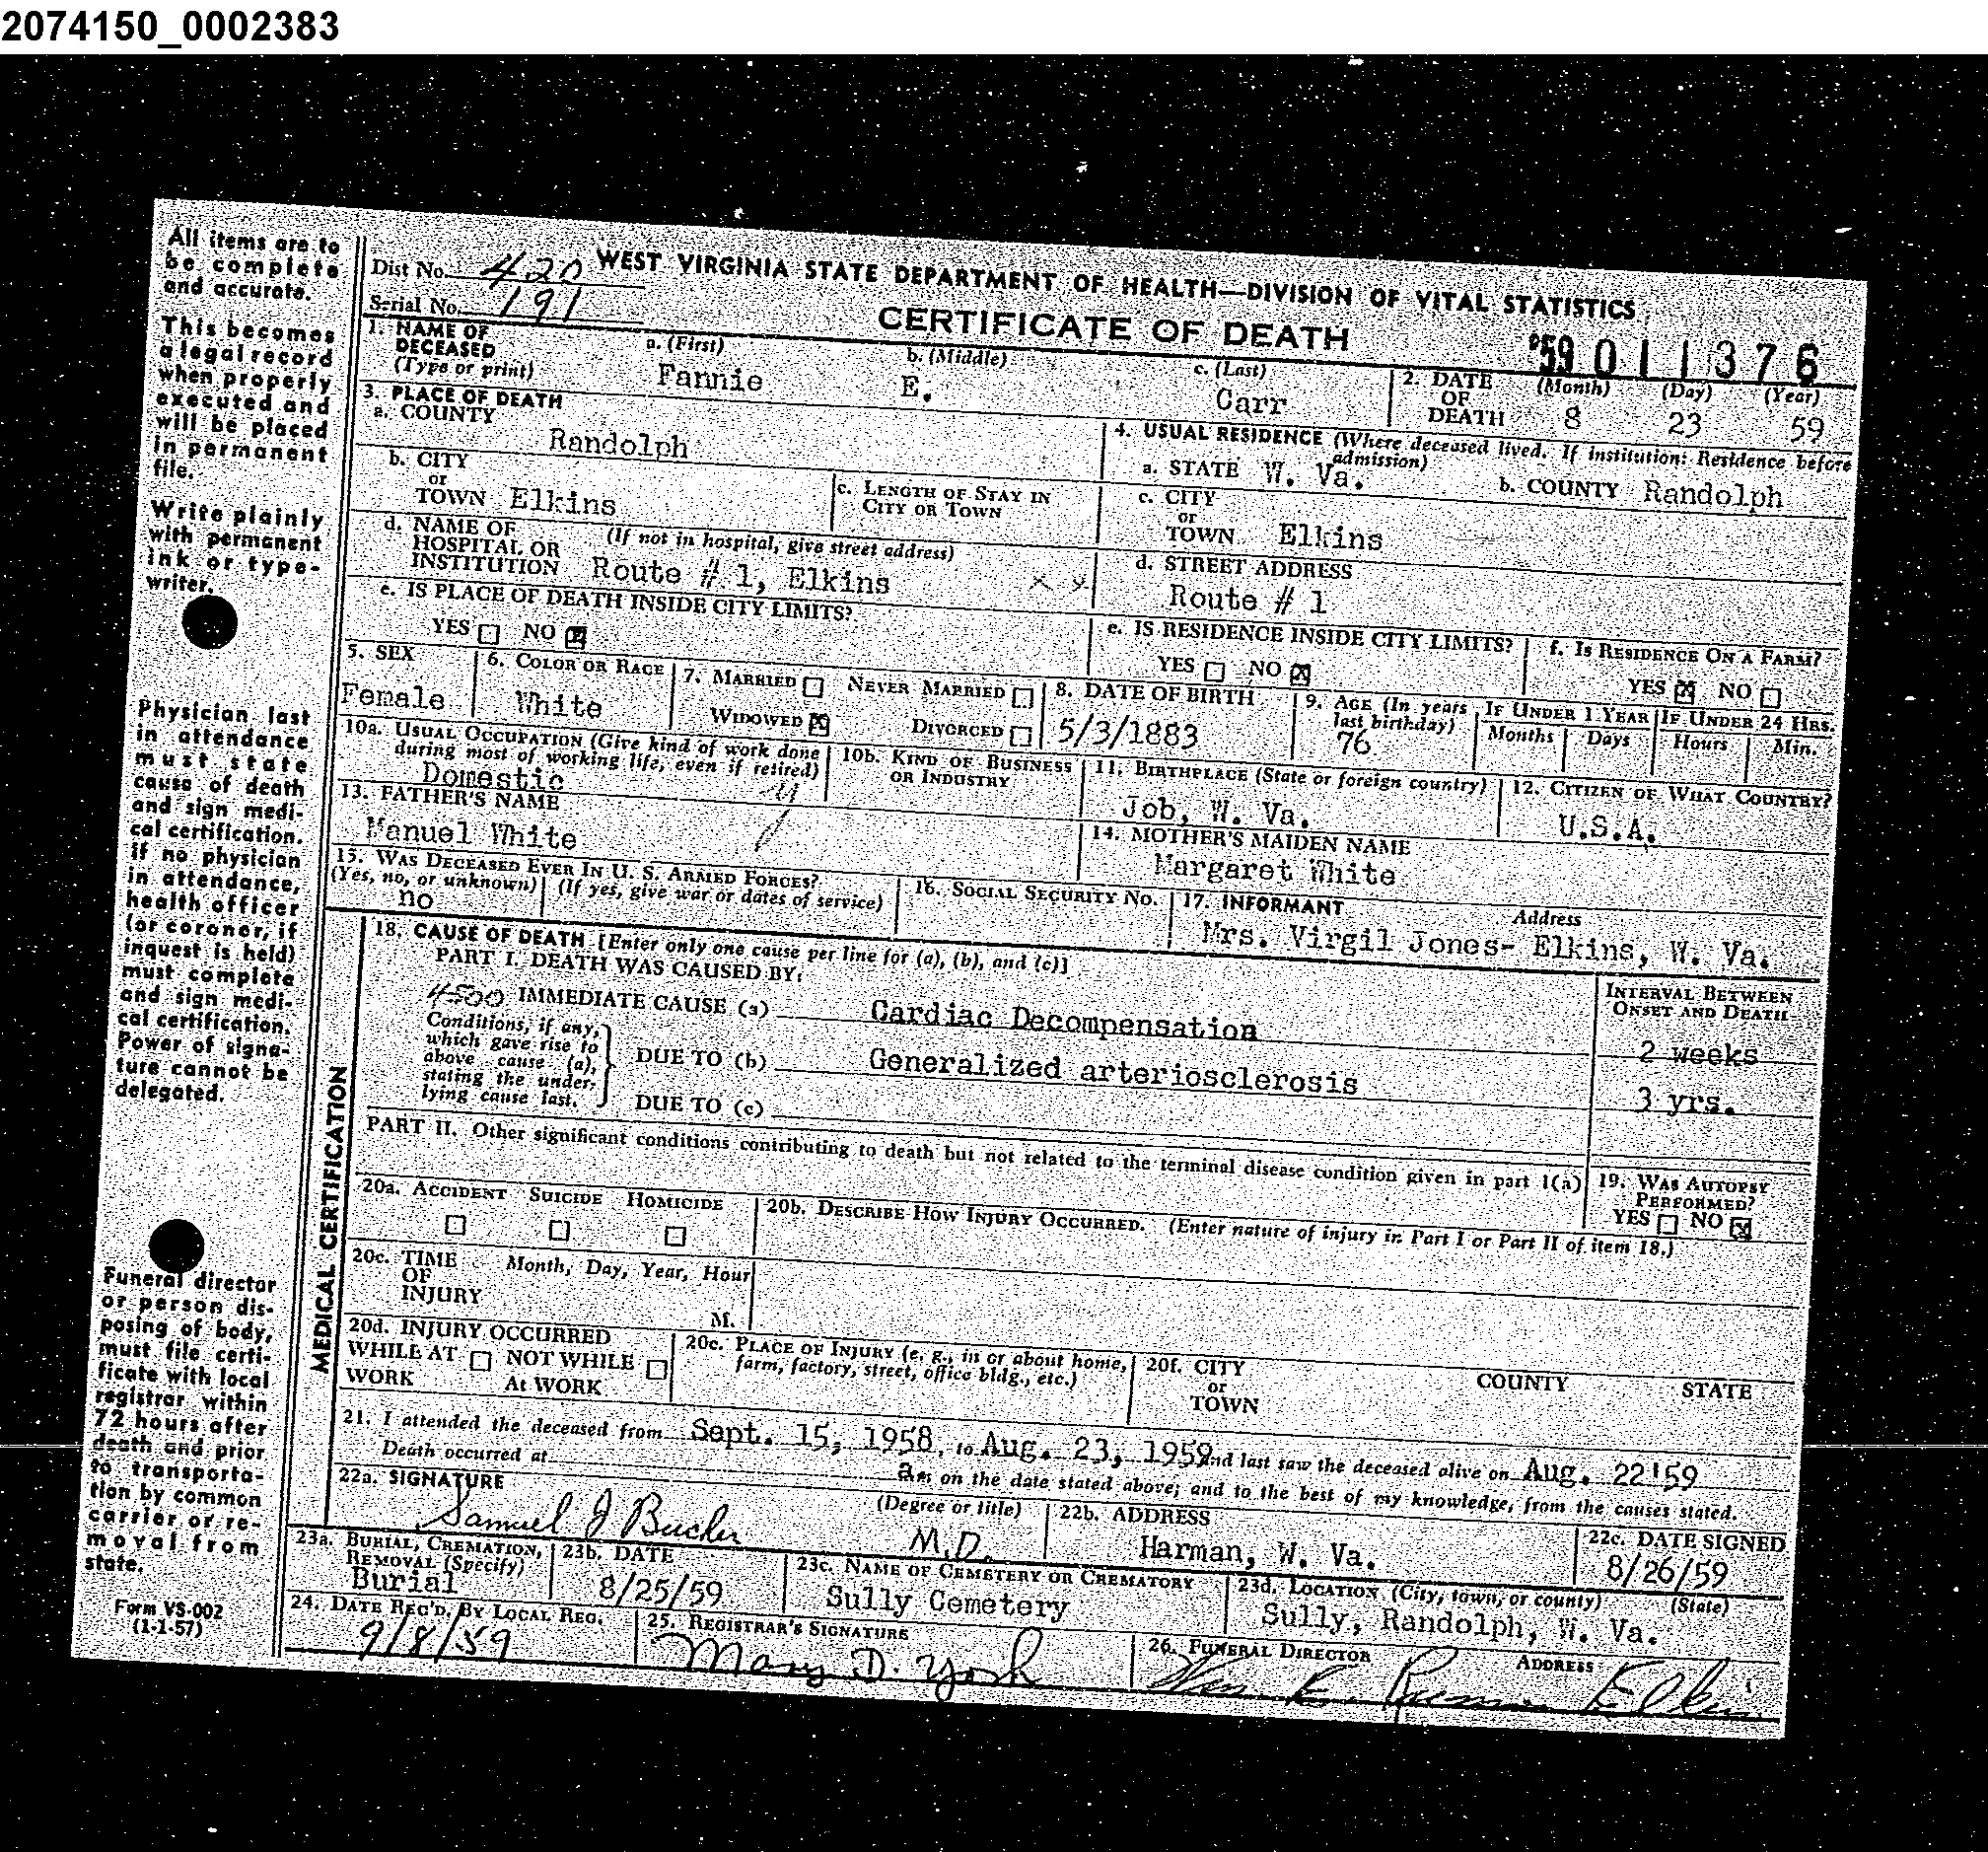 2074150_0002383
All items are to
be complete
and accurate.
This becomes
a legal record
when properly
executed and
will be placed
in permanent
file.
Write plainly
with permanent
ink or type-
writer.
Physician last
in attendance
must state
cause of death
and sign medi-
cal certification.
if no physician
in attendance,
health officer
(or coroner, if
inquest is held)
must complete
and sign medi-
cal certification.
Power of signa-
ture cannot be
delegated.
Funeral director
or person dis-
posing of body,
must file certi-
ficate with local
registrar within
72 hours after
death and prior
to transporta-
tion by common
carrier or re-
moval from
state.
Form VS-002
(1-1-57)
Dist No. 420 WEST VIRGINIA STATE DEPARTMENT OF HEALTH—DIVISION OF VITAL STATISTICS
Serial No. 191 CERTIFICATE OF DEATH
'59 011376
1. NAME OF DECEASED (Type or print) a. (First) Fannie b. (Middle) E. c. (Last) Carr
2. DATE OF DEATH (Month) 8 (Day) 23 (Year) 59
3. PLACE OF DEATH
a. COUNTY Randolph
4. USUAL RESIDENCE (Where deceased lived. If institution: Residence before admission)
a. STATE W. Va. b. COUNTY Randolph
b. CITY or TOWN Elkins c. LENGTH OF STAY IN CITY OR TOWN
c. CITY or TOWN Elkins
d. NAME OF HOSPITAL OR INSTITUTION (If not in hospital, give street address) Route # 1, Elkins
d. STREET ADDRESS Route # 1
e. IS PLACE OF DEATH INSIDE CITY LIMITS?
YES NO
e. IS RESIDENCE INSIDE CITY LIMITS?
YES NO
f. IS RESIDENCE ON A FARM?
YES NO
5. SEX Female
6. COLOR OR RACE White
7. MARRIED NEVER MARRIED
WIDOWED DIVORCED
8. DATE OF BIRTH 5/3/1883
9. AGE (In years last birthday) 76
IF UNDER 1 YEAR Months Days
IF UNDER 24 HRS. Hours Min.
10a. USUAL OCCUPATION (Give kind of work done during most of working life, even if retired) Domestic
10b. KIND OF BUSINESS OR INDUSTRY
11. BIRTHPLACE (State or foreign country) Job, W. Va.
12. CITIZEN OF WHAT COUNTRY? U.S.A.
13. FATHER'S NAME Manuel White
14. MOTHER'S MAIDEN NAME Margaret White
15. WAS DECEASED EVER IN U. S. ARMED FORCES?
(Yes, no, or unknown) (If yes, give war or dates of service)
no
16. SOCIAL SECURITY NO.
17. INFORMANT Address
Mrs. Virgil Jones- Elkins, W. Va.
MEDICAL CERTIFICATION
18. CAUSE OF DEATH [Enter only one cause per line for (a), (b), and (c)]
PART I. DEATH WAS CAUSED BY:
INTERVAL BETWEEN ONSET AND DEATH
4500 IMMEDIATE CAUSE (a) Cardiac Decompensation 2 weeks
Conditions, if any, which gave rise to above cause (a), stating the under-lying cause last.
DUE TO (b) Generalized arteriosclerosis 3 yrs.
DUE TO (c)
PART II. Other significant conditions contributing to death but not related to the terminal disease condition given in part I(a)
19. WAS AUTOPSY PERFORMED?
YES NO
20a. ACCIDENT SUICIDE HOMICIDE
20b. DESCRIBE HOW INJURY OCCURRED. (Enter nature of injury in Part I or Part II of item 18.)
20c. TIME OF INJURY Month, Day, Year, Hour
M.
20d. INJURY OCCURRED
WHILE AT WORK NOT WHILE At WORK
20e. PLACE OF INJURY (e. g., in or about home, farm, factory, street, office bldg., etc.)
20f. CITY or TOWN COUNTY STATE
21. I attended the deceased from Sept. 15, 1958, to Aug. 23, 1959 and last saw the deceased alive on Aug. 22'59
Death occurred at a m on the date stated above; and to the best of my knowledge, from the causes stated.
22a. SIGNATURE (Degree or title)
Samuel J Bucher M.D.
22b. ADDRESS Harman, W. Va.
22c. DATE SIGNED 8/26/59
23a. BURIAL, CREMATION, REMOVAL (Specify) Burial
23b. DATE 8/25/59
23c. NAME OF CEMETERY OR CREMATORY Sully Cemetery
23d. LOCATION (City, town, or county) (State)
Sully, Randolph, W. Va.
24. DATE REC'D. BY LOCAL REG. 9/8/59
25. REGISTRAR'S SIGNATURE Mary D. York
26. FUNERAL DIRECTOR ADDRESS